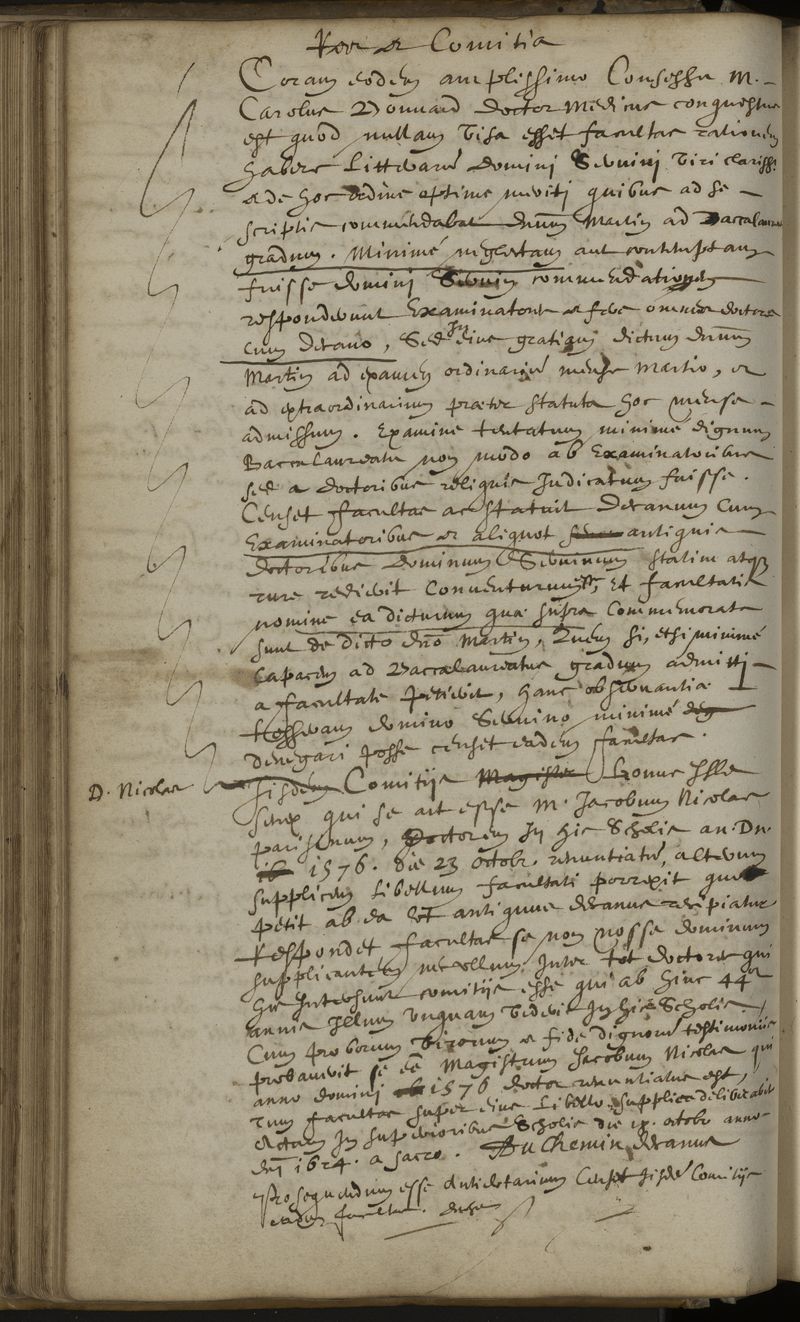 Comitia
Coram eodem amplissimo Consessu M.
Carolus Bouuard doctor medicus conquestus
est quod nullam visa esset facultas rationem
habere litterarum domini Seuini viri clariss.
ac de hoc ordine optime meriti quibus ad se
scriptis commendabat dnum Martin ad Baccalaureatus
gradum. Minimè neglectam aut contemptam
fuisse domini Seuini commendationem
responderunt Examinatores et fere omnes doctores
cum decano, Sed In eius gratiam dictum dnum
Martin ad examen ordinarium mense Martio, et
ad extraordinarium praeter statuta hoc mense
admissum. Examine tentatum minime dignum
Baccalaureatu non modo ab Examinatoribus
sed a doctoribus reliquis Iudicatum fuisse.
Censet facultas ac statuit Decanum cum
Examinatoribus et aliquot antiquis
doctoribus dominum Seuinum statim atque
rure redierit conuenturum, Et facultatis
nomine ea dicturum quae supra commemorata
sunt de dicto dno Martin, Quem si, etsi minimè
capacem ad Baccalaureatus gradum admitti
a facultate petierit, hanc obseruantiae
tesseram domino Seuino minimè
denegari posse censet eadem facultas.
D. Nicolas
Iisdem Comitiis Bonus Ille
senex qui se ait esse M. Jacobum Nicolas
parisinum, Doctorem In his Scholis an. Dni.
1576. die 23 octobr. renuntiatum, alterum
supplicem libellum facultati porrexit quo
petit ab ea ut antiquus decanus recipiatur
Respondet facultas se non nosse dominum
supplicantem nec ullum Inter tot doctores qui
his Intersunt comitiis esse qui ab hinc 44
annis Illum unquam viderit In his Scholis,
Cum proborum virorum et fide dignorum testimoniis
probauerit se eum Magistrum Jacobum Nicolas qui
anno domini 1576 doctor renuntiatus est,
tum facultas super eius libello supplice deliberabit
Actum In superioribus Scholis die octobr anno
dni 1624. a sacro. Du Chemin decanus
Prosequendum esse Antidotarium Censet Iisdem Comitiis
eadem facultas.